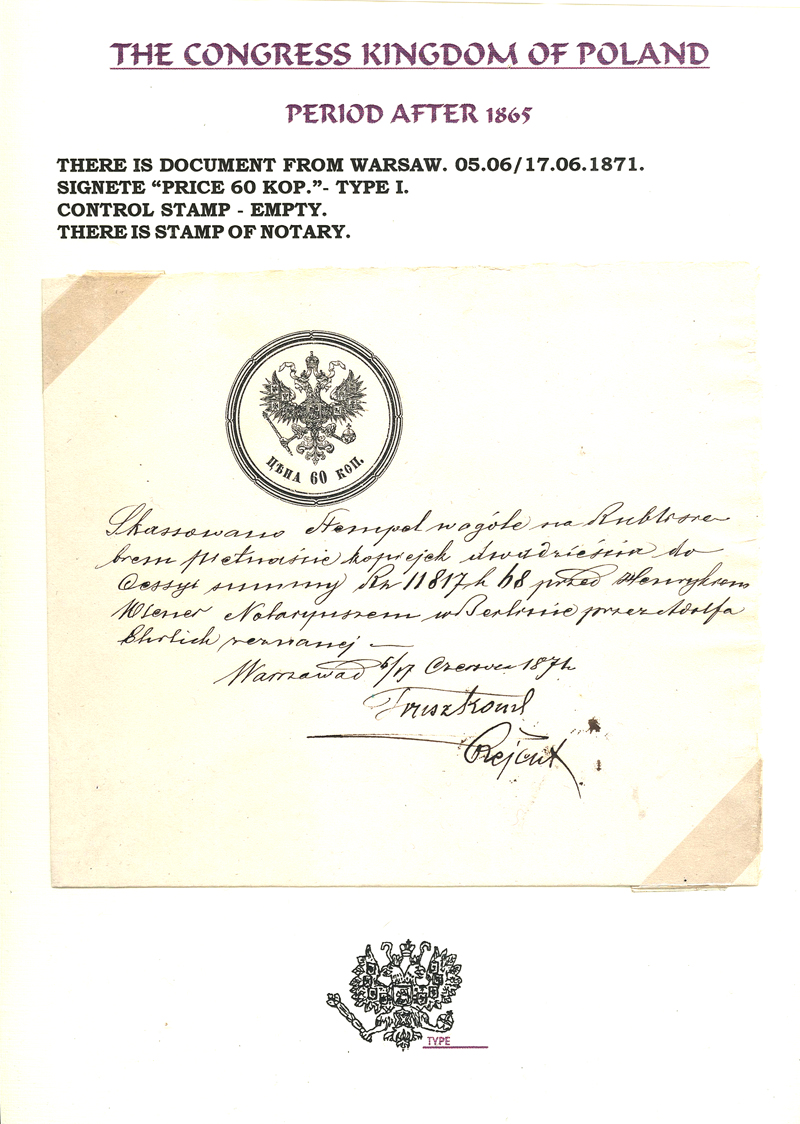 THE CONGRESS KINGDOM OF POLAND
PERIOD AFTER 1865
THERE IS DOCUMENT FROM WARSAW. 05.06/17.06.1871.
SIGNETE “PRICE 60 KOP.”- TYPE I.
CONTROL STAMP - EMPTY.
THERE IS STAMP OF NOTARY.
ЦѢНА 60 КОП.
Skassowano Stempel wogóle na Rubli sre-
brem piętnaście kopiejek dwadzieścia do
Cessyi summy Rs 11817 k 68 przed Henrykiem
Wiener Notaryuszem w Berlinie przez Adolfa
Ehrlich zeznanej —
Warszawa d 5/17 Czerwca 1871 r
Rejent
TYPE